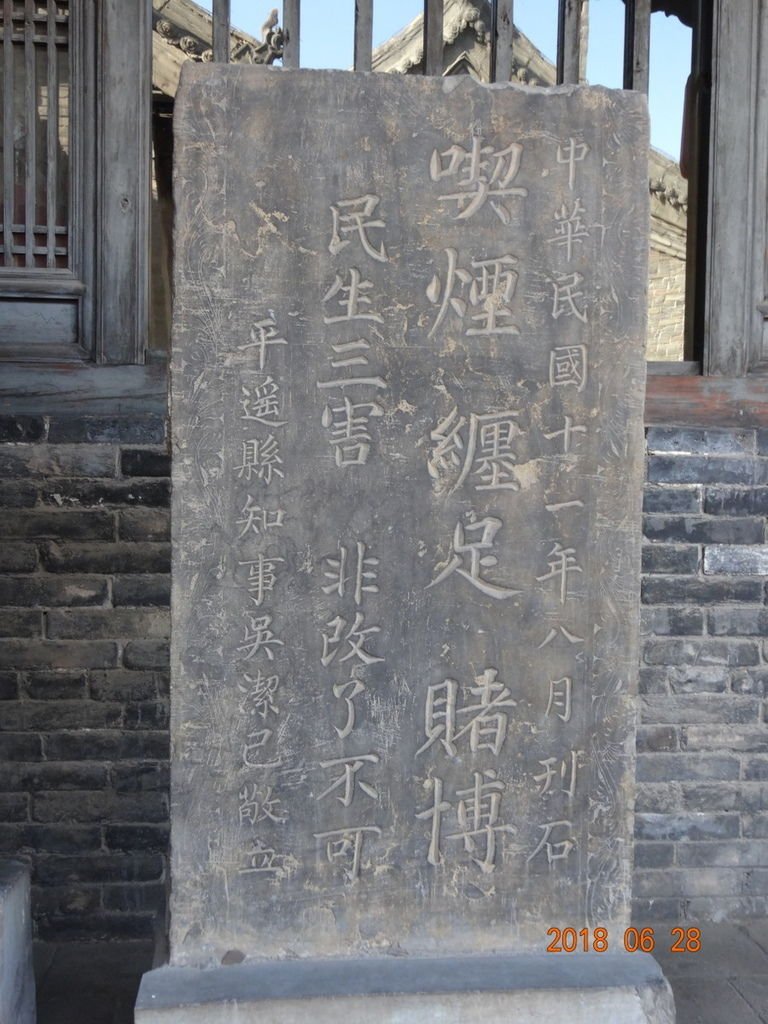 中華民國十一年八月刊石
喫煙 纏足 賭博
民生三害 非改了不可
平遥縣知事吳潔己敬立
2018 06 28